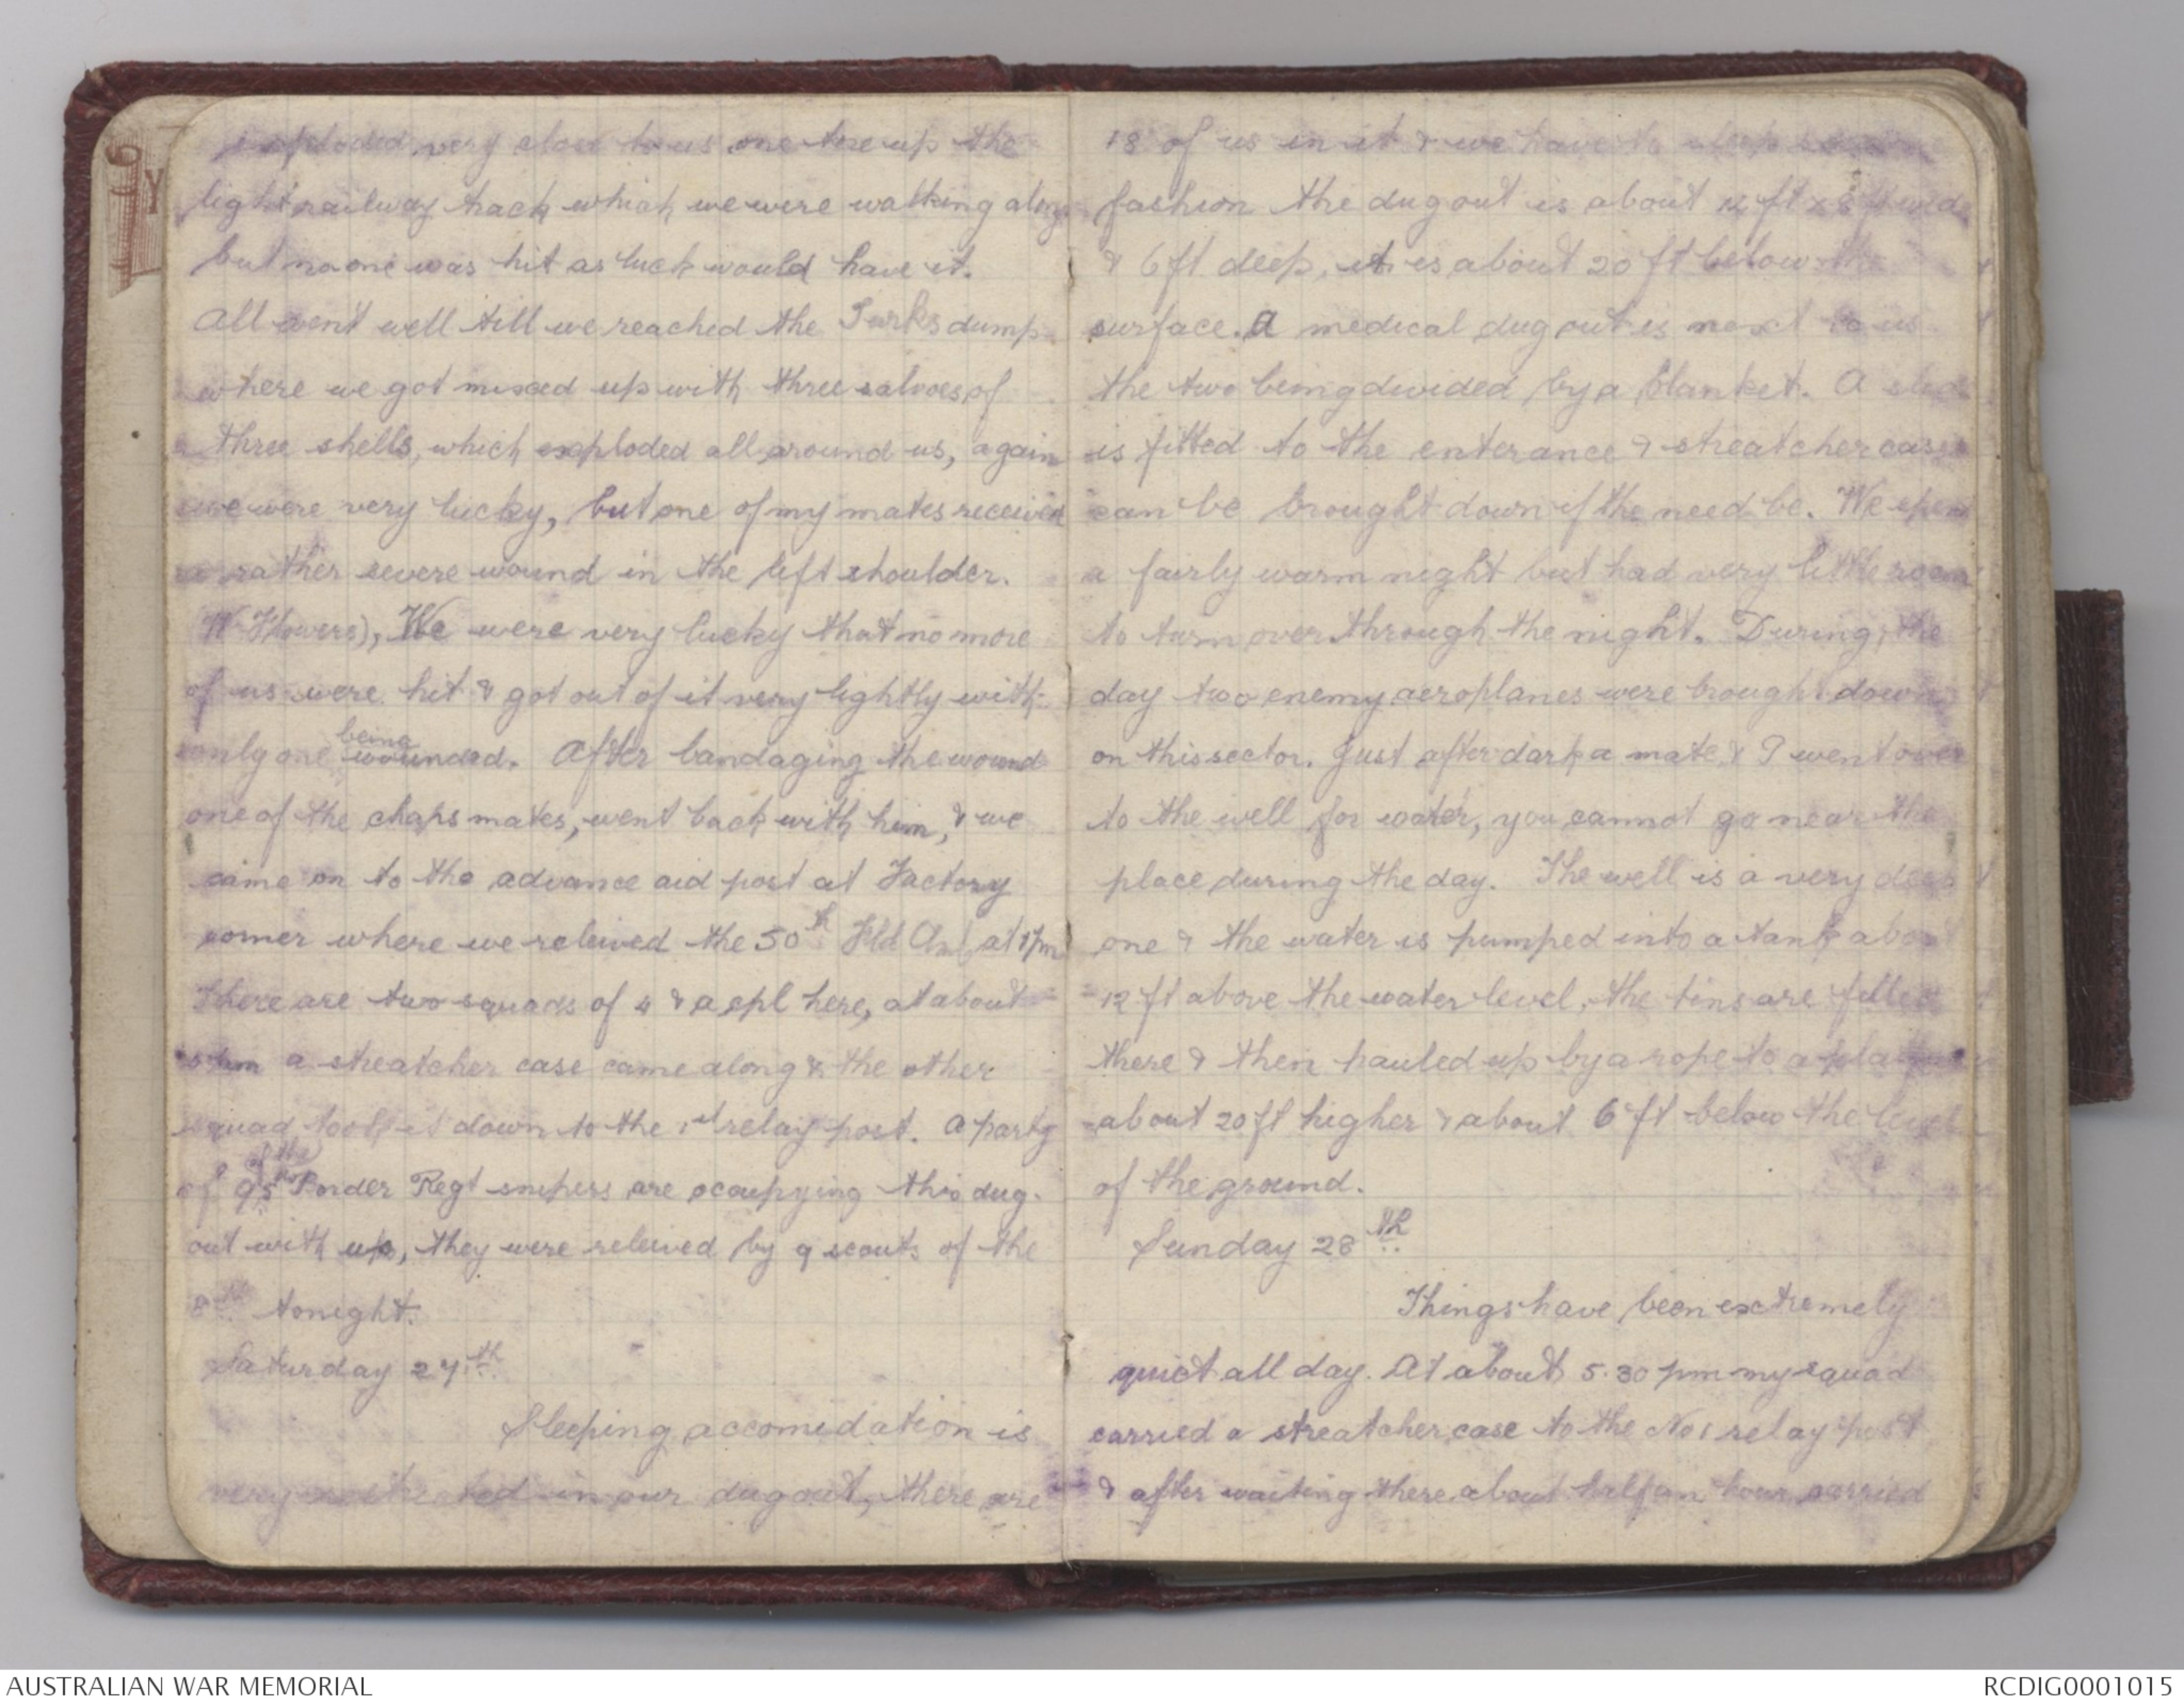 exploded very close to us one tore up the
light railway track which we were walking along
but no one was hit as luck would have it.
All went well till we reached the Turks dump
where we got mixed up with three salvoes of
three shells, which exploded all around us, again
we were very lucky, but one of my mates received
a rather severe wound in the left shoulder.
(W Flowers), We were very lucky that no more
of us were hit & got out of it very lightly with
only one being wounded. After bandaging the wound
one of the chaps mates, went back with him, & we
came on to the advance aid post at Factory
corner where we releived the 50th Fld Amb at
There are two squads of 4 & a cpl here, at about
a streatcher case came along & the other
squad took it down to the 1st relay post. A party
of the Border Regt snipers are occupying this dug-
out with us, they were releived by 9 scouts of the
8th tonight.
Saturday 27th
Sleeping accomidation is
very in our dugout, there are
18 of us in it & we have to sleep
fashion the dugout is about 12 ft x 8 ft wide
& 6 ft deep, it is about 20 ft below the
surface. A medical dugout is next to us
the two being divided by a blanket. A
is fitted to the enterance & streatcher cases
can be brought down if the need be. We spent
a fairly warm night but had very little room
to turn over through the night. During the
day two enemy aeroplanes were brought down
on this sector. Just after dark a mate & I went over
to the well for water, you cannot go near the
place during the day. The well is a very deep
one & the water is pumped into a tank about
12 ft above the water level, the tins are filled
there & then hauled up by a rope to a
about 20 ft higher & about 6 ft below the level
of the ground.
Sunday 28th
Things have been extremely
quiet all day. At about 5.30 pm my squad
carried a streatcher case to the No 1 relay post
& after waiting there about half an hour carried
AUSTRALIAN WAR MEMORIAL
RCDIG0001015